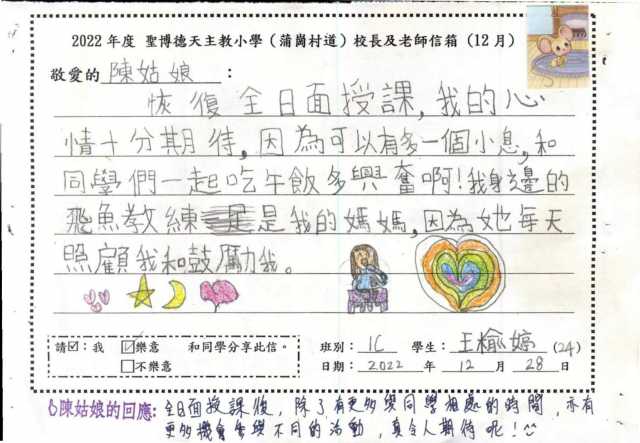 2022 年度 聖博德天主教小學（蒲崗村道）校長及老師信箱（12 月）
敬愛的 陳姑娘 ：
恢復全日面授課，我的心
情十分期待，因為可以有多一個小息，和
同學們一起吃午飯多興奮啊！我身邊的
飛魚教練是我的媽媽，因為她每天
照顧我和鼓勵我。
請☑：我 ☑樂意 和同學分享此信。
□不樂意
班別： 1C 學生： 王榆婷 (24)
日期： 2022 年 12 月 28 日
陳姑娘的回應：全日面授課後，除了有更多與同學相處的時間，亦有
更多機會參與不同的活動，真令人期待呢！